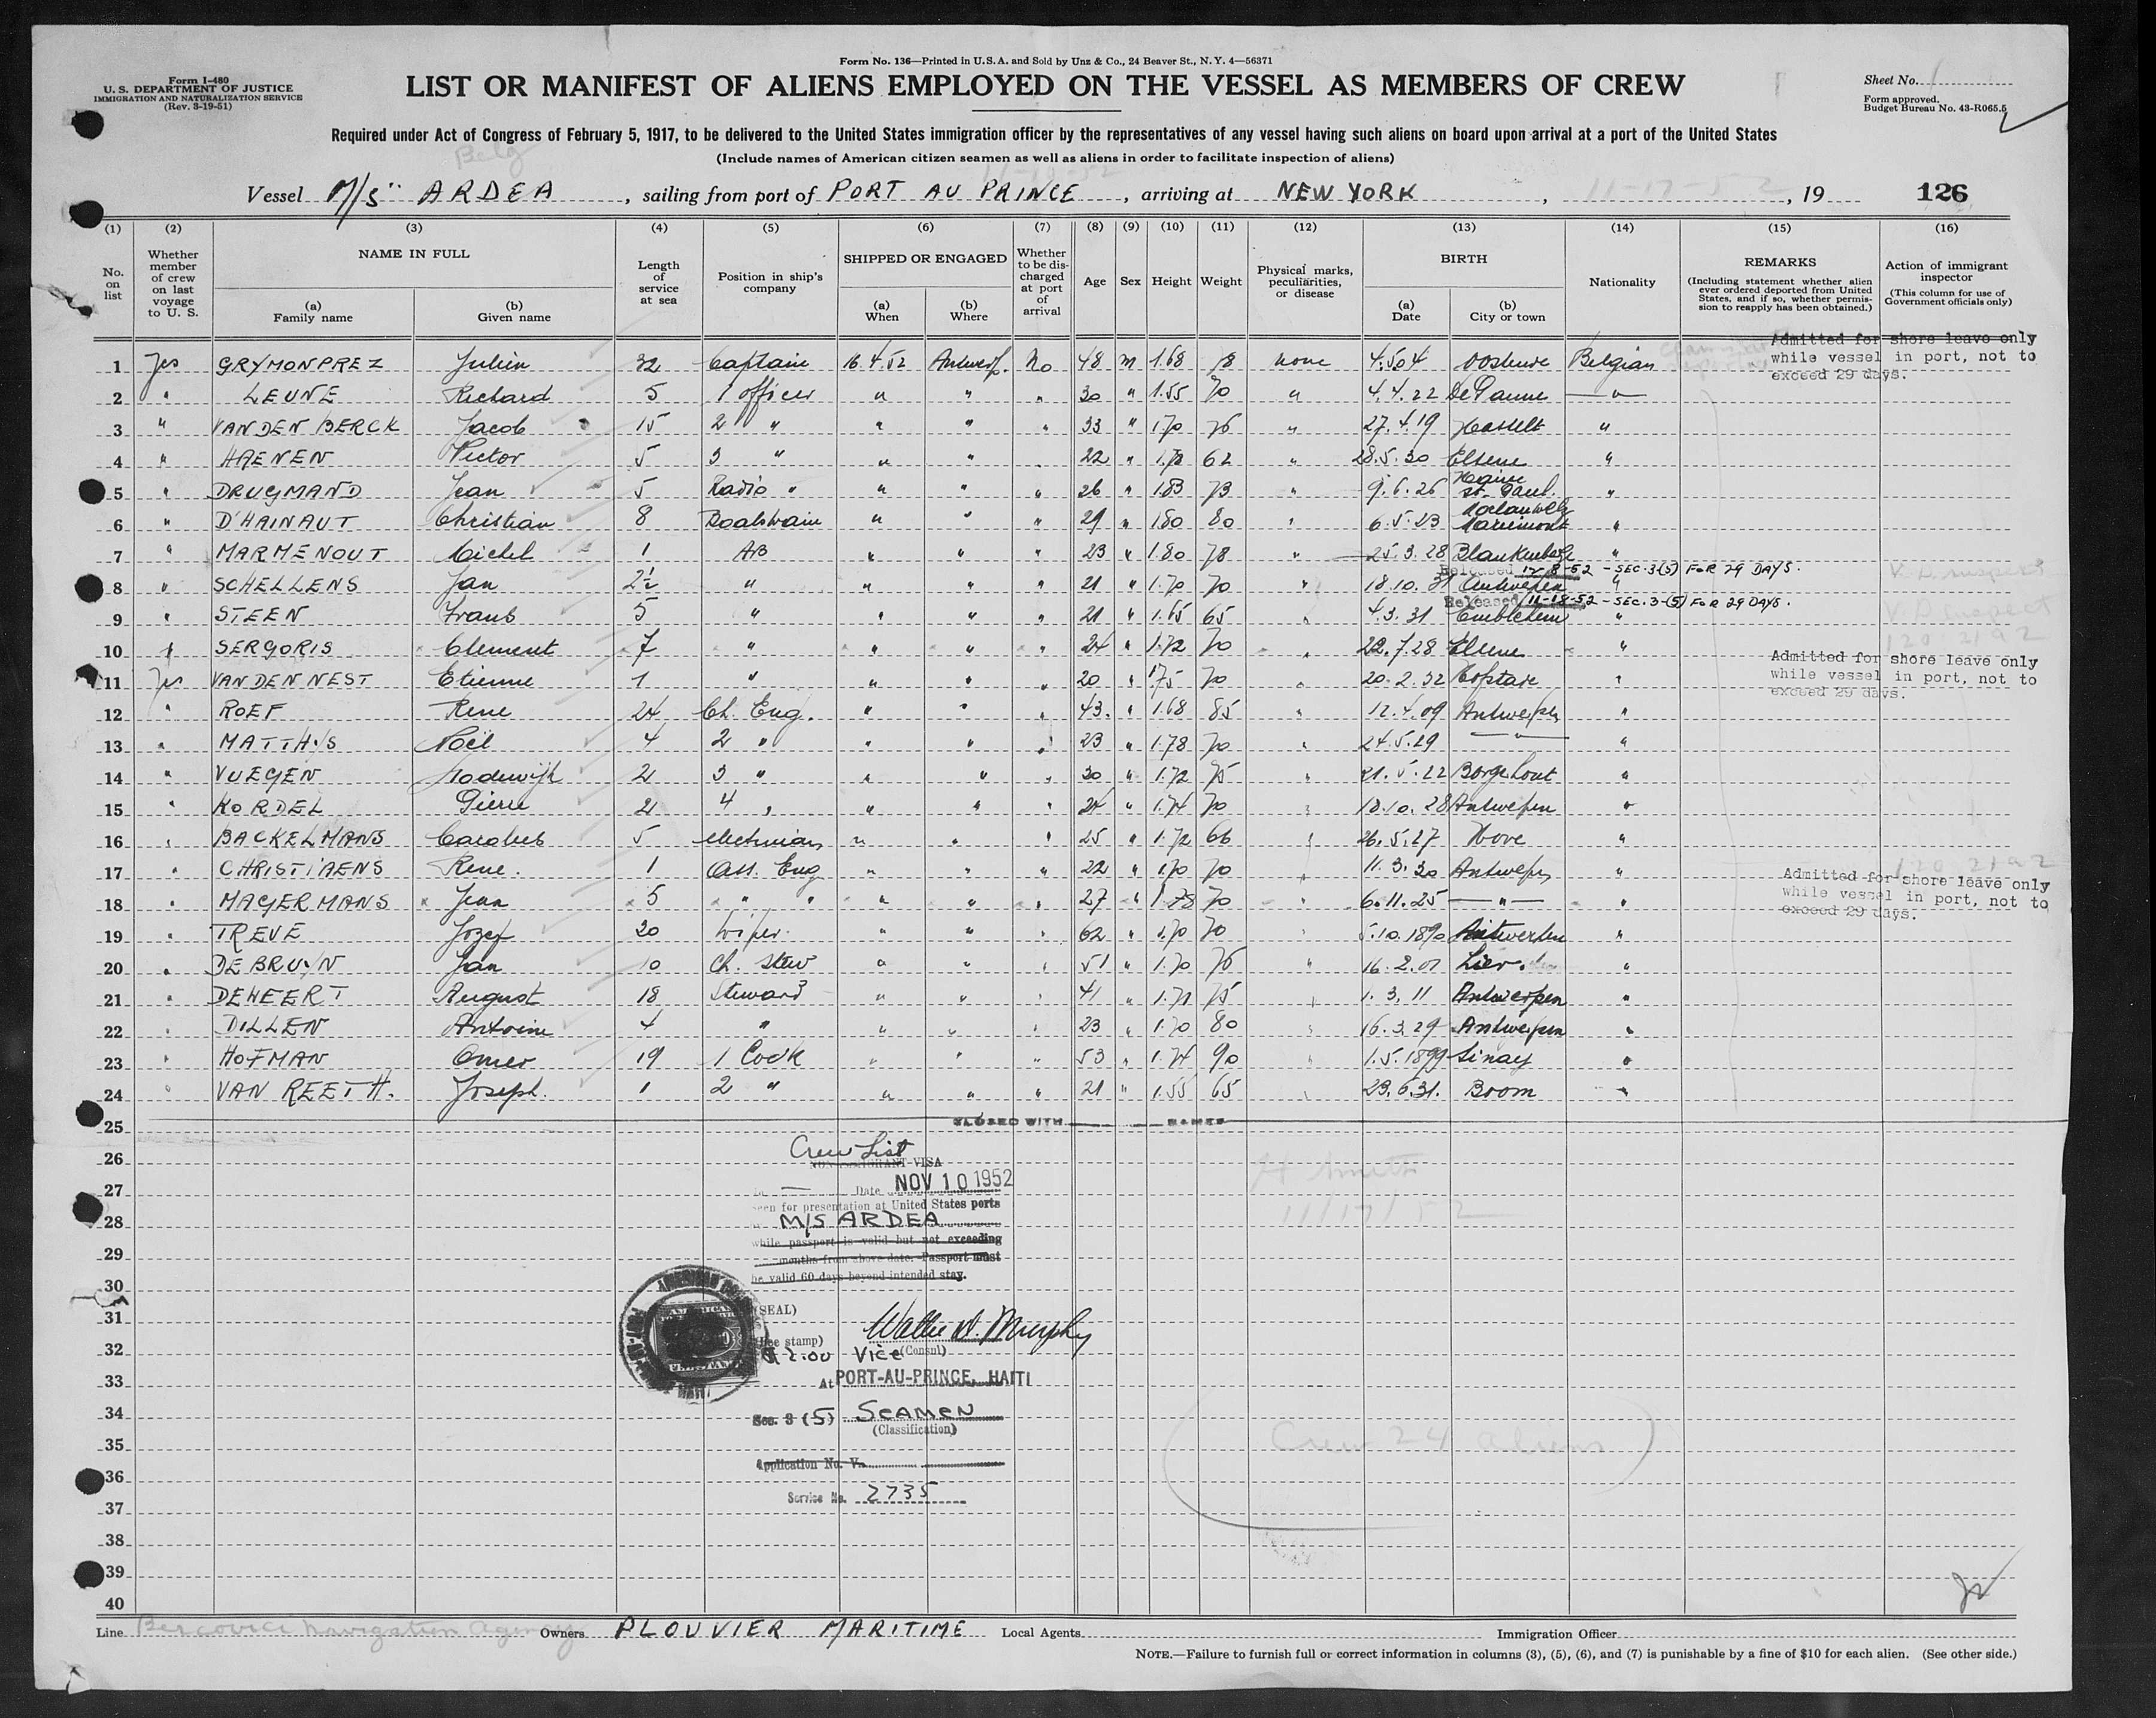 Form No. 136—Printed in U.S.A. and Sold by Unz & Co., 24 Beaver St., N. Y. 4—56371
Form I-480
U. S. DEPARTMENT OF JUSTICE
IMMIGRATION AND NATURALIZATION SERVICE
(Rev. 3-19-51)
LIST OR MANIFEST OF ALIENS EMPLOYED ON THE VESSEL AS MEMBERS OF CREW
Sheet No. 1
Form approved.
Budget Bureau No. 43-R065.5
Required under Act of Congress of February 5, 1917, to be delivered to the United States immigration officer by the representatives of any vessel having such aliens on board upon arrival at a port of the United States
(Include names of American citizen seamen as well as aliens in order to facilitate inspection of aliens)
Belg
Vessel M/S ARDEA, sailing from port of PORT AU PRINCE, arriving at NEW YORK, 11-17-52, 19 126
(1) (2) (3) (4) (5) (6) (7) (8) (9) (10) (11) (12) (13) (14) (15) (16)
No. on list
Whether member of crew on last voyage to U. S.
NAME IN FULL
(a) Family name
(b) Given name
Length of service at sea
Position in ship's company
SHIPPED OR ENGAGED
(a) When
(b) Where
Whether to be discharged at port of arrival
Age Sex Height Weight
Physical marks, peculiarities, or disease
BIRTH
(a) Date
(b) City or town
Nationality
REMARKS
(Including statement whether alien ever ordered deported from United States, and if so, whether permission to reapply has been obtained.)
Action of immigrant inspector
(This column for use of Government officials only)
Admitted for shore leave only
while vessel in port, not to
exceed 29 days.
1 Yes GRYMONPREZ Julien 32 Captain 16.4.52 Antwerp. No 48 m 1.68 78 none 4.5.04 Oostende Belgian
2 " LEUNE Richard 5 1 officer " " " 30 " 1.55 70 " 4.4.22 De Panne "
3 " VAN DEN BERCK Jacob 15 2 " " " " 33 " 1.70 76 " 27.4.19 Hasselt "
4 " HAENEN Victor 5 3 " " " " 22 " 1.78 62 " 28.5.30 Elsene "
5 " DRUGMAND Jean 5 Radio " " " " 26 " 1.83 73 " 9.6.26 Haine St. Paul. "
6 " D'HAINAUT Christian 8 Boatswain " " 29 " 1.80 80 " 6.5.23 Morlanwelz Mariemont "
7 " MARMENOUT Michel 1 AB " " " 23 " 1.80 78 " 25.3.28 Blankenberge "
Released 12-8-52 - SEC. 3(5) FOR 29 DAYS.
8 " SCHELLENS Jan 2½ " " " " 21 " 1.70 70 " 18.10.31 Antwerpen " V.D. suspect
Released 11-18-52 - SEC. 3-(5) FOR 29 DAYS.
9 " STEEN Frans 5 " " " " 21 " 1.65 65 " 4.3.31 Emblehem " V.D. suspect
120 2192
10 " SERGORIS Clement 7 " " " " 24 " 1.72 70 " 22.7.28 Elsene "
Admitted for shore leave only
while vessel in port, not to
exceed 29 days.
11 Yes VAN DEN NEST Etienne 1 " " " " 20 " 1.75 70 " 20.2.32 "
12 " ROEF Rene 24 Ch. Eng. " " " 43. " 1.68 85 " 12.4.09 Antwerpen "
13 " MATTHYS Noël 4 2 " " " " 23 " 1.78 70 " 24.5.29 " "
14 " VUEGEN Lodewijk 2 3 " " " " 30 " 1.72 75 " 21.5.22 Borgehout "
15 " KORDEL Pierre 2 4 " " " " 24 " 1.74 70 " 18.10.28 Antwerpen "
16 " BACKELMANS Carolus 5 electrician " " " 25 " 1.72 66 " 26.5.27 Hove "
17 " CHRISTIAENS Rene. 1 Ass. Eng " " " 22 " 1.70 70 " 11.3.30 Antwerpen "
120 2192
Admitted for shore leave only
while vessel in port, not to
exceed 29 days.
18 " MAGERMANS Jean 5 " " " " " 27 " 1.78 70 " 6.11.25 " "
19 " TREVE Jozef 20 Wiper. " " " 62 " 1.70 70 " 5.10.1890 Antwerpen "
20 " DE BRUYN Jan 10 Ch. Stew " " " 51 " 1.70 76 " 16.2.01 Lier. "
21 " DEHEERT August 18 Steward " " 41 " 1.71 75 " 1.3.11 Antwerpen "
22 " DILLEN Antoine 4 " " " " 23 " 1.70 80 " 16.3.29 Antwerpen "
23 " HOFMAN Omer 19 1 Cook " " " 53 " 1.74 90 " 1.5.1899 Sinay "
24 " VAN REETH. Joseph. 1 2 " " " " 21 " 1.55 65 " 23.6.31. Boom "
25 CLOSED WITH NAMES
26
27
28
29
30
31
32
33
34
35
36
37
38
39
40
Crew List
NON-IMMIGRANT-VISA
Date NOV 10 1952
Seen for presentation at United States ports
M/S ARDEA
while passport is valid but not exceeding
months from above date. Passport must
be valid 60 days beyond intended stay.
11/17/52
(SEAL)
(Fee stamp)
$2.00
Walter W. Murphy
Vice (Consul)
At PORT-AU-PRINCE, HAITI
Sec. 3 (5) SEAMEN
(Classification)
Application No. V
Service No. 2735
Crew 24 aliens
Line Bercovici Navigation Agency Owners PLOUVIER MARITIME Local Agents Immigration Officer
NOTE.—Failure to furnish full or correct information in columns (3), (5), (6), and (7) is punishable by a fine of $10 for each alien. (See other side.)